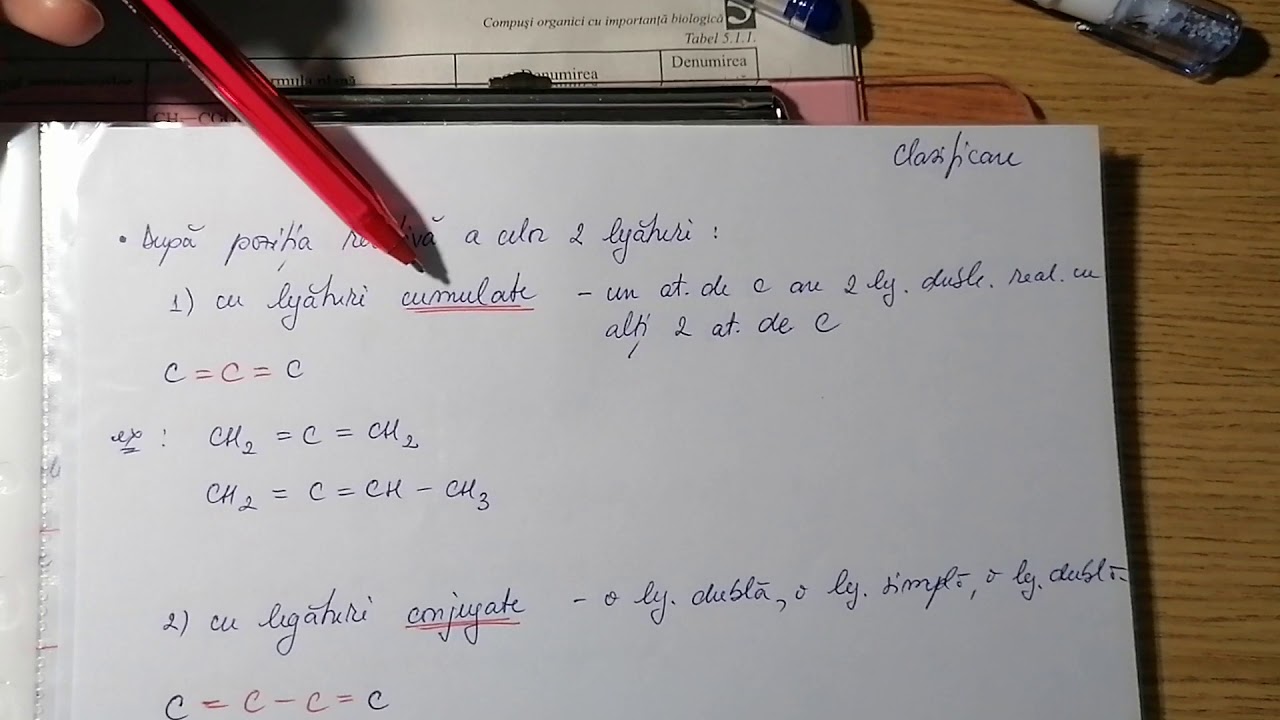 Compuși organici cu importanță biologică 5
Tabel 5.1.1.
Denumirea Denumirea
Clasificare
• După poziția relativă a celor 2 legături :
1) cu legături cumulate – un at. de C are 2 leg. duble. real. cu
alți 2 at. de C
C = C = C
ex : CH2 = C = CH2
CH2 = C = CH – CH3
2) cu legături conjugate – o leg. dublă, o leg. simplă, o leg. dublă
C = C – C = C